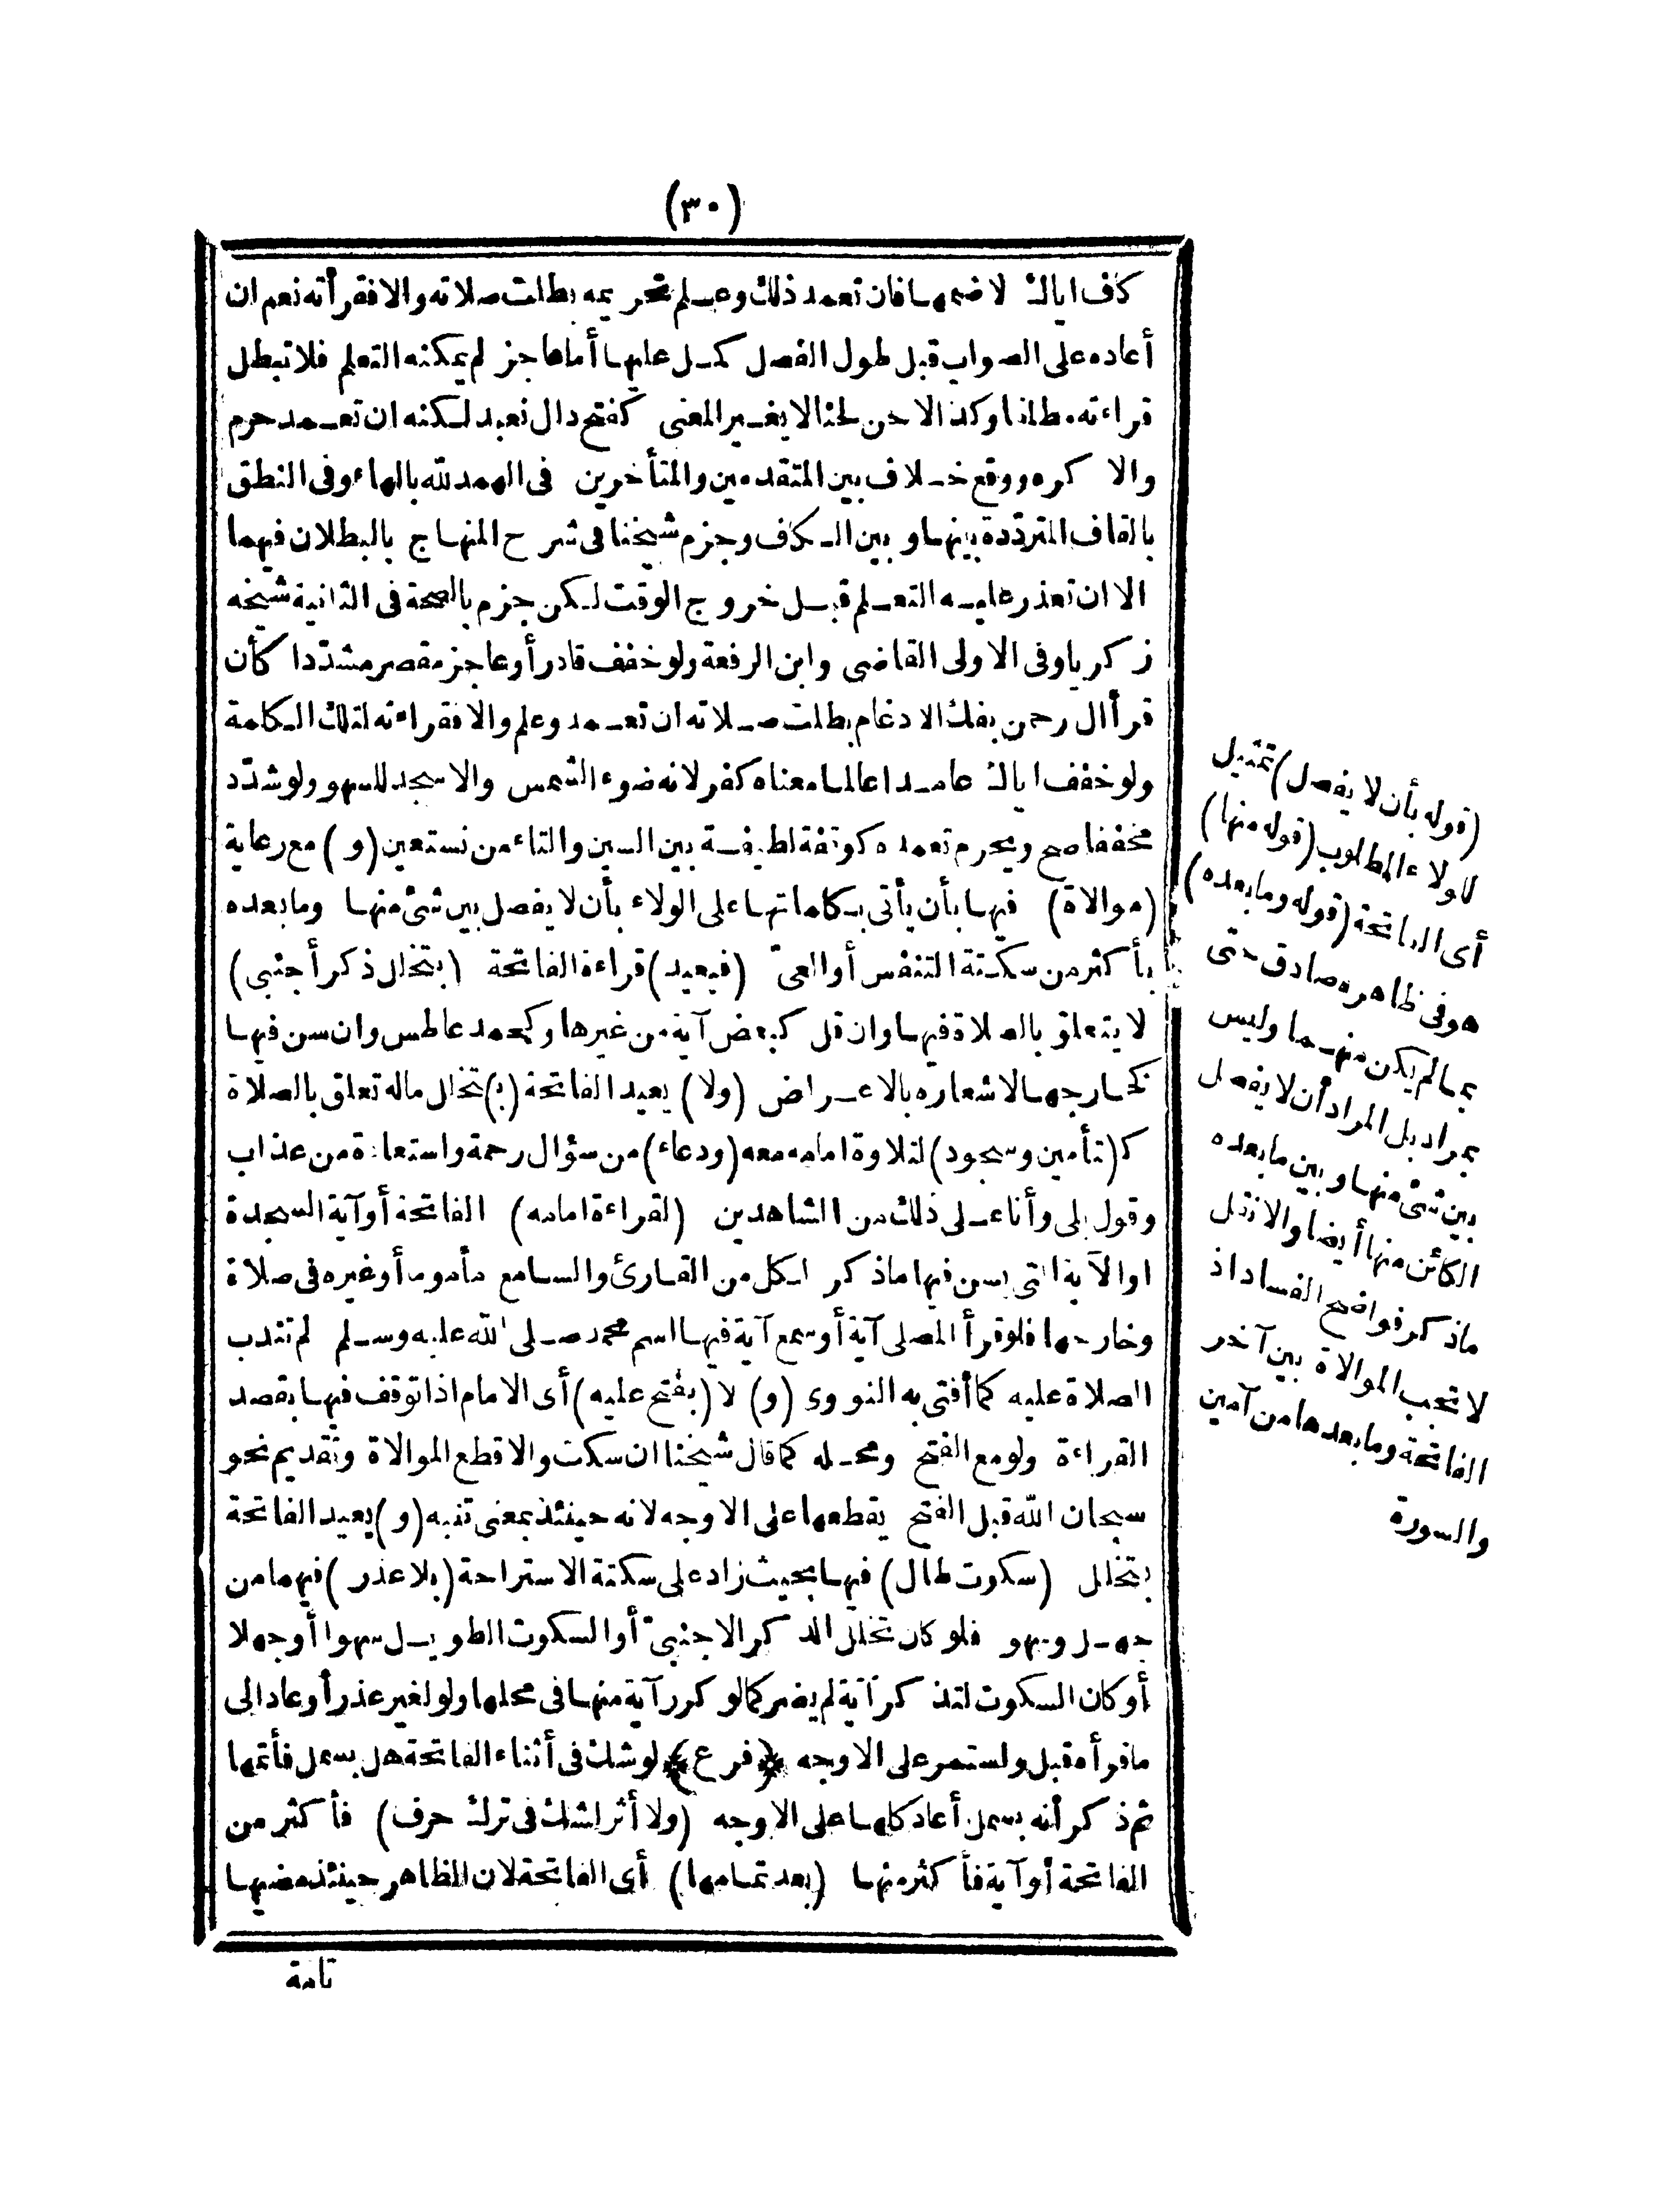 (٣٠)
كاف اياك لا ضمها فان تعمد ذلك وعلم تحريمه بطلت صلاته والا فقرأته نعم ان
أعاده على الصواب قبل طول الفصل كمل عليها أما عاجز لم يمكنه التعلم فلا تبطل
قراءته مطلقا وكذا لاحن لحنا لا يغير المعنى كفتح دال نعبد لكنه ان تعمد حرم
والا كره ووقع خلاف بين المتقدمين والمتأخرين فى الهمد لله بالهاء وفى النطق
بالقاف المتردّدة بينها وبين الكاف وجزم شيخنا فى شرح المنهاج بالبطلان فيهما
الا ان تعذر عليه التعلم قبل خروج الوقت لكن جزم بالصحة فى الثانية شيخه
زكريا وفى الاولى القاضى وابن الرفعة ولو خفف قادر أو عاجز مقصر مشدّدا كأن
قرأ ال رحمن بفك الادغام بطلت صلاته ان تعمد وعلم والا فقراءته لتلك الكلمة
ولو خفف اياك عامدا عالما معناه كفر لانه ضوء الشمس والا سجد للسهو ولو شدّد
مخففا صح ويحرم تعمده كوقفة لطيفة بين السين والتاء من نستعين (و) مع رعاية
(موالاة) فيها بأن يأتى بكلماتها على الولاء بأن لا يفصل بين شئ منها وما بعده
بأكثر من سكتة التنفس أو العىّ (فيعيد) قراءة الفاتحة (بتخلل ذكر أجنبى)
لا يتعلق بالصلاة فيها وان قل كبعض آية من غيرها وكحمد عاطس وان سن فيها
كخارجها لاشعاره بالاعراض (ولا) يعيد الفاتحة (ب) تخلل ماله تعلق بالصلاة
ك(تأمين وسجود) لتلاوة امامه معه (ودعاء) من سؤال رحمة واستعاذة من عذاب
وقول بلى وأنا على ذلك من الشاهدين (لقراءة امامه) الفاتحة أو آية السجدة
او الآية التى يسن فيها ما ذكر لكل من القارئ والسامع مأموما أو غيره فى صلاة
وخارجها فلو قرأ المصلى آية أو سمع آية فيها اسم محمد صلى الله عليه وسلم لم تندب
الصلاة عليه كما أفتى به النووى (و) لا (بفتح عليه) أى الامام اذا توقف فيها بقصد
القراءة ولو مع الفتح ومحله كما قال شيخنا ان سكت والا قطع الموالاة وتقديم نحو
سبحان الله قبل الفتح يقطعها على الاوجه لانه حينئذ بمعنى تنبه (و) يعيد الفاتحة
بتخلل (سكوت طال) فيها بحيث زاد على سكتة الاستراحة (بلا عذر) فيهما من
جهل وسهو فلو كان تخلل الذكر الاجنبىّ أو السكوت الطويل سهوا أو جهلا
أو كان السكوت لتذكر آية لم يضر كما لو كرر آية منها فى محلها ولو لغير عذر أو عاد الى
ما قرأه قبل واستمر على الاوجه ﴿فرع﴾ لو شك فى أثناء الفاتحة هل بسمل فأتمها
ثم ذكر أنه بسمل أعاد كلها على الاوجه (ولا أثر لشك فى ترك حرف) فأكثر من
الفاتحة أو آية فأكثر منها (بعد تمامها) أى الفاتحة لان الظاهر حينئذ مضيها
تامة
(قوله بأن لا يفصل) تمثيل
للولاء المطلوب (قوله منها)
أى الفاتحة (قوله وما بعده)
هو فى ظاهره صادق حتى
بما لم يكن منها وليس
بمراد بل المراد أن لا يفصل
بين شئ منها وبين ما بعده
الكائن منها أيضا والا نقل
ما ذكر فواضح الفساد اذ
لا تجب الموالاة بين آخر
الفاتحة وما بعدها من آمين
والسورة